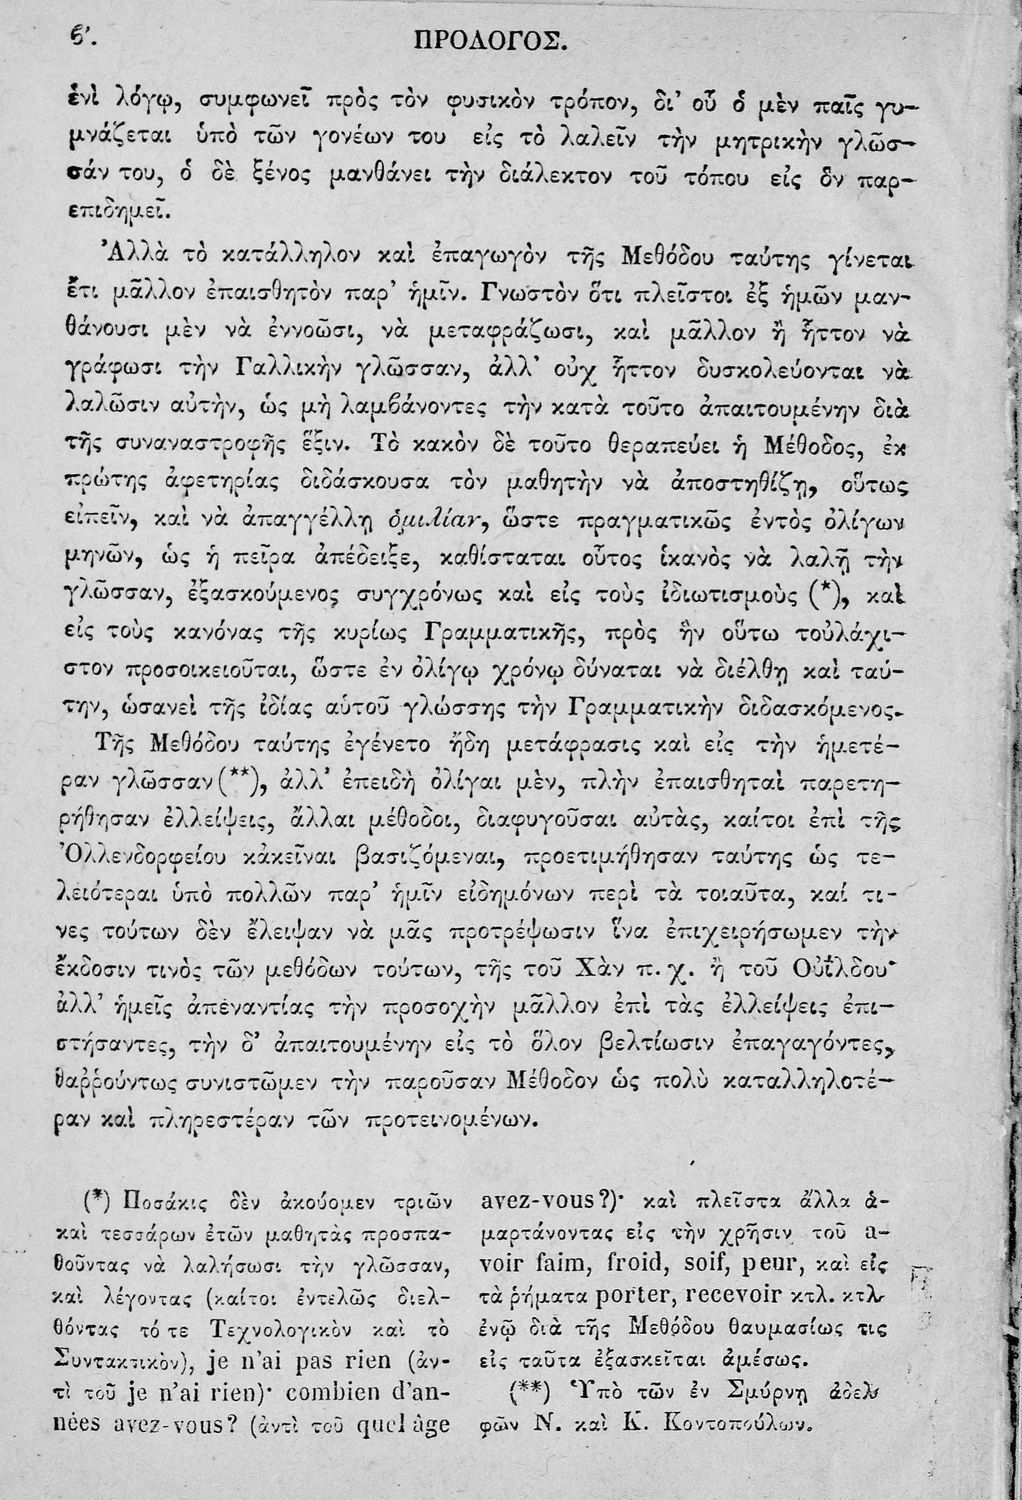 ϐʹ.
ΠΡΟΛΟΓΟΣ.
ἑνὶ λόγῳ, συμφωνεῖ πρὸς τὸν φυσικὸν τρόπον, δι’ οὗ ὁ μὲν παῖς γυ-
μνάζεται ὑπὸ τῶν γονέων του εἰς τὸ λαλεῖν τὴν μητρικὴν γλῶσ-
σάν του, ὁ δὲ ξένος μανθάνει τὴν διάλεκτον τοῦ τόπου εἰς ὃν παρ-
επιδημεῖ.
Ἀλλὰ τὸ κατάλληλον καὶ ἐπαγωγὸν τῆς Μεθόδου ταύτης γίνεται
ἔτι μᾶλλον ἐπαισθητὸν παρ’ ἡμῖν. Γνωστὸν ὅτι πλεῖστοι ἐξ ἡμῶν μαν-
θάνουσι μὲν νὰ ἐννοῶσι, νὰ μεταφράζωσι, καὶ μᾶλλον ἢ ἧττον νὰ
γράφωσι τὴν Γαλλικὴν γλῶσσαν, ἀλλ’ οὐχ ἧττον δυσκολεύονται νὰ
λαλῶσιν αὐτὴν, ὡς μὴ λαμϐάνοντες τὴν κατὰ τοῦτο ἀπαιτουμένην διὰ
τῆς συναναστροφῆς ἕξιν. Τὸ κακὸν δὲ τοῦτο θεραπεύει ἡ Μέθοδος, ἐκ
πρώτης ἀφετηρίας διδάσκουσα τὸν μαθητὴν νὰ ἀποστηθίζῃ, οὕτως
εἰπεῖν, καὶ νὰ ἀπαγγέλλῃ ὁμιλίαν, ὥστε πραγματικῶς ἐντὸς ὀλίγων
μηνῶν, ὡς ἡ πεῖρα ἀπέδειξε, καθίσταται οὗτος ἱκανὸς νὰ λαλῇ τὴν
γλῶσσαν, ἐξασκούμενος συγχρόνως καὶ εἰς τοὺς ἰδιωτισμοὺς (*), καὶ
εἰς τοὺς κανόνας τῆς κυρίως Γραμματικῆς, πρὸς ἣν οὕτω τοὐλάχι-
στον προσοικειοῦται, ὥστε ἐν ὀλίγῳ χρόνῳ δύναται νὰ διέλθῃ καὶ ταύ-
την, ὡσανεὶ τῆς ἰδίας αὑτοῦ γλώσσης τὴν Γραμματικὴν διδασκόμενος.
Τῆς Μεθόδου ταύτης ἐγένετο ἤδη μετάφρασις καὶ εἰς τὴν ἡμετέ-
ραν γλῶσσαν (**), ἀλλ’ ἐπειδὴ ὀλίγαι μὲν, πλὴν ἐπαισθηταὶ παρετη-
ρήθησαν ἐλλείψεις, ἄλλαι μέθοδοι, διαφυγοῦσαι αὐτὰς, καίτοι ἐπὶ τῆς
Ὀλλενδορφείου κἀκεῖναι βασιζόμεναι, προετιμήθησαν ταύτης ὡς τε-
λειότεραι ὑπὸ πολλῶν παρ’ ἡμῖν εἰδημόνων περὶ τὰ τοιαῦτα, καί τι-
νες τούτων δὲν ἔλειψαν νὰ μᾶς προτρέψωσιν ἵνα ἐπιχειρήσωμεν τὴν
ἔκδοσιν τινὸς τῶν μεθόδων τούτων, τῆς τοῦ Χὰν π. χ. ἢ τοῦ Οὐΐλδου·
ἀλλ’ ἡμεῖς ἀπεναντίας τὴν προσοχὴν μᾶλλον ἐπὶ τὰς ἐλλείψεις ἐπι-
στήσαντες, τὴν δ’ ἀπαιτουμένην εἰς τὸ ὅλον βελτίωσιν ἐπαγαγόντες,
θαῤῥούντως συνιστῶμεν τὴν παροῦσαν Μέθοδον ὡς πολὺ καταλληλοτέ-
ραν καὶ πληρεστέραν τῶν προτεινομένων.
(*) Ποσάκις δὲν ἀκούομεν τριῶν
καὶ τεσσάρων ἐτῶν μαθητὰς προσπα-
θοῦντας νὰ λαλήσωσι τὴν γλῶσσαν,
καὶ λέγοντας (καίτοι ἐντελῶς διελ-
θόντας τό τε Τεχνολογικὸν καὶ τὸ
Συντακτικὸν), je n'ai pas rien (ἀν-
τὶ τοῦ je n'ai rien)· combien d'an-
nées avez-vous? (ἀντὶ τοῦ quel âge
avez-vous?)· καὶ πλεῖστα ἄλλα ἁ-
μαρτάνοντας εἰς τὴν χρῆσιν τοῦ a-
voir faim, froid, soif, peur, καὶ εἰς
τὰ ῥήματα porter, recevoir κτλ. κτλ.
ἐνῷ διὰ τῆς Μεθόδου θαυμασίως τις
εἰς ταῦτα ἐξασκεῖται ἀμέσως.
(**) Ὑπὸ τῶν ἐν Σμύρνῃ ἀδελ-
φῶν Ν. καὶ Κ. Κοντοπούλων.